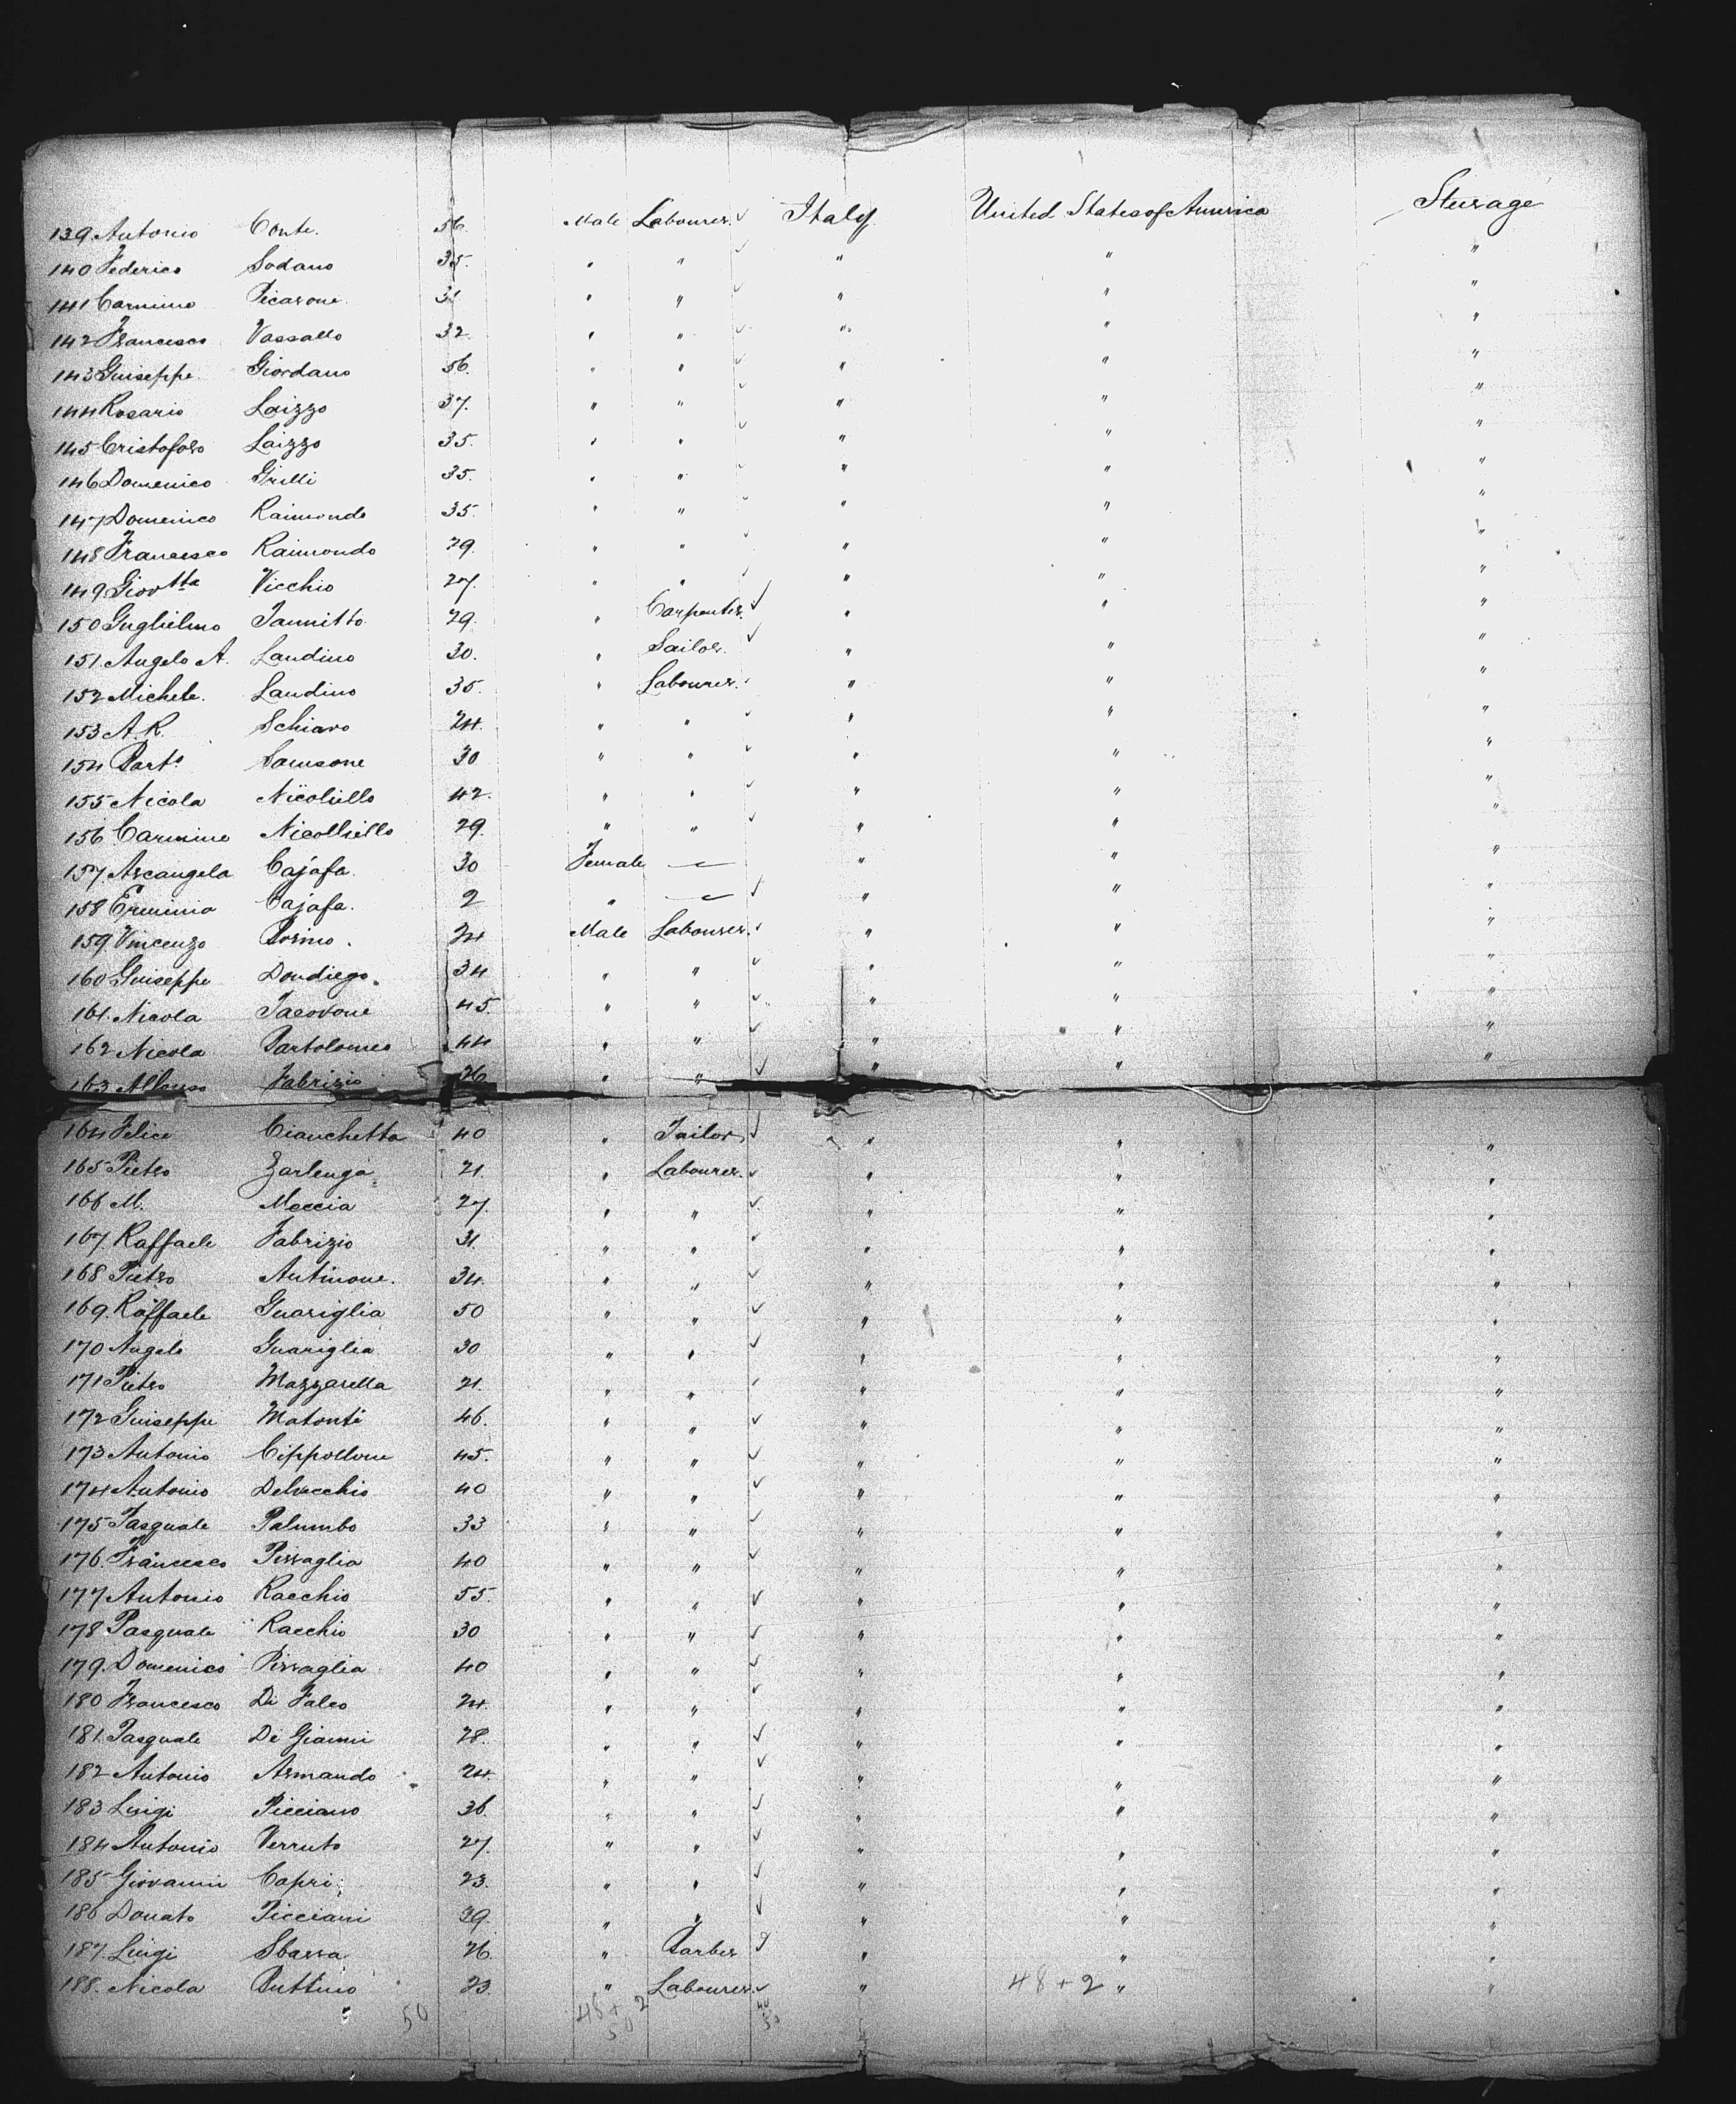 139 Antonio Conte. 56. Male Labourer. Italy. United States of America Steerage
140 Federico Sodano 35. " " " " "
141 Carmino Picarone. 31 " " " " "
142 Francesco Vassallo 32. " " " " "
143 Guiseppe Giordano 56. " " " " "
144 Rosario Laizzo 37. " " " " "
145 Cristoforo Laizzo 35. " " " " "
146 Domenico Grilli 35. " " " " "
147 Domenico Raimondo 35. " " " " "
148 Francesco Raimondo 29. " " " " "
149 Giovtta Vicchio 27. " " " " "
150 Guglielmo Iannitto 29. " Carpenter. " " "
151. Angelo A. Landino 30. " Sailor. " " "
152 Michele. Landino 35. " Labourer. " " "
153 A. R. Schiavo 24. " " " " "
154 Barto Samsone 30 " " " " "
155 Nicola Nicoliello 42. " " " " "
156 Carmine Nicolliello 29. " " " " "
157. Arcangela Cajafa. 30 Female — " " "
158 Erminia Cajafa. 2 " — " " "
159. Vincenzo Borino. 24 Male Labourer. " " "
160 Guiseppe Dondiego. 34 " " " " "
161. Nicola Iacovone 45. " " " " "
162 Nicola Bartolomeo 44 " " " " "
163 Alfonso Fabrizio 26 " " " " "
164 Felice Cianchetta 40 " Tailor " " "
165 Pietro Zarlenga 21. " Labourer. " " "
166 M. Moccia 27. " " " " "
167. Raffaele Fabrizio 31. " " " " "
168 Pietro Antinone. 34. " " " " "
169. Raffaele Guariglia 50 " " " " "
170 Angelo Guariglia 30 " " " " "
171 Pietro Mazzarella 21. " " " " "
172 Guiseppe Matonti 46. " " " " "
173 Antonio Cippollone 45. " " " " "
174 Antonio Delvecchio 40 " " " " "
175 Pasquale Palumbo 33 " " " " "
176. Francesco Pirraglia 40 " " " " "
177 Antonio Racchio 55. " " " " "
178 Pasquale Racchio 30 " " " " "
179. Domenico Pirraglia 40 " " " " "
180 Francesco Di Falco 24. " " " " "
181. Pasquale Di Gianni 28. " " " " "
182 Antonio Armando 24. " " " " "
183 Luigi Picciano 36. " " " " "
184 Antonio Verruto 27. " " " " "
185 Giovanni Capri 23. " " " " "
186 Donato Picciani 39. " " " " "
187. Luigi Sbarra 26. " Barber " " "
188. Nicola Buttino 23. " Labourer. " 48 + 2 " "
50 48 + 2
50